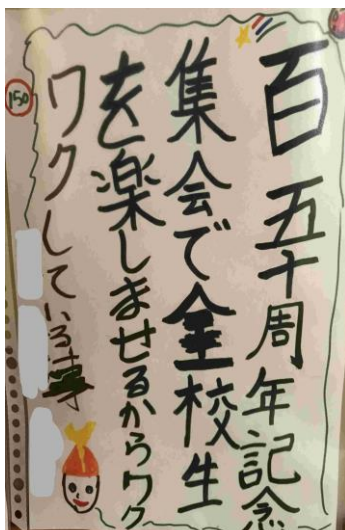 百五十周年記念
集会で全校生
を楽しませるからワク
ワクしている事
150